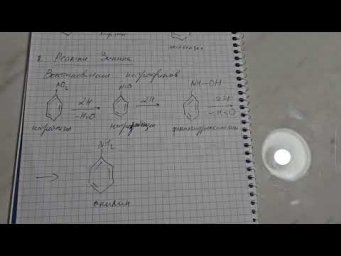 8. Реакция Зинина
Восстановление нитросоединений
NO₂ NO NH-OH
2H -H₂O 2H 2H -H₂O
нитробензол нитрозобензол фенилгидроксиламин
NH₂
анилин